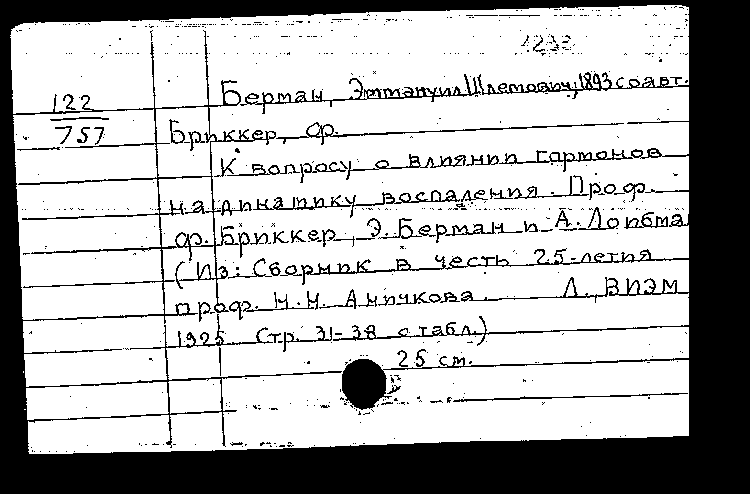 1233
122
757
Берман, Эммануил Шлемович, 1893 соавт.
Бриккер, Ф.
К вопросу о влиянии гормонов
на динамику воспаления. Проф.
Ф. Бриккер, Э. Берман и А. Лойбма
(Из: Сборник в честь 25-летия
проф. Н.Н. Аничкова. Л., ВИЭМ
1925 Стр. 31-38 с табл.)
25 см.